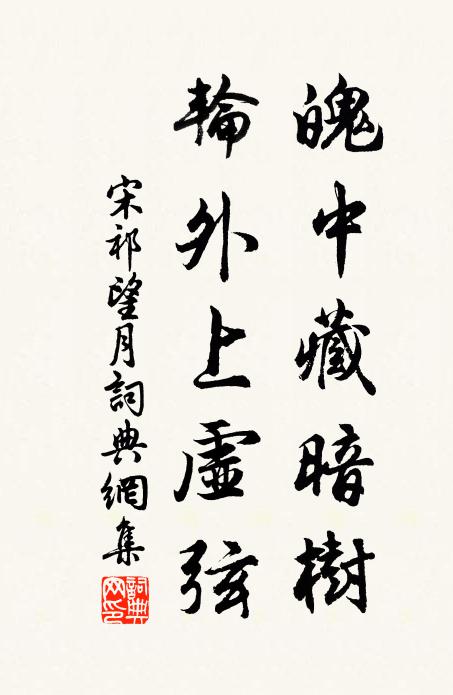 魄中藏暗樹
輪外上虛弦
宋祁望月詞典網集
詞典網印